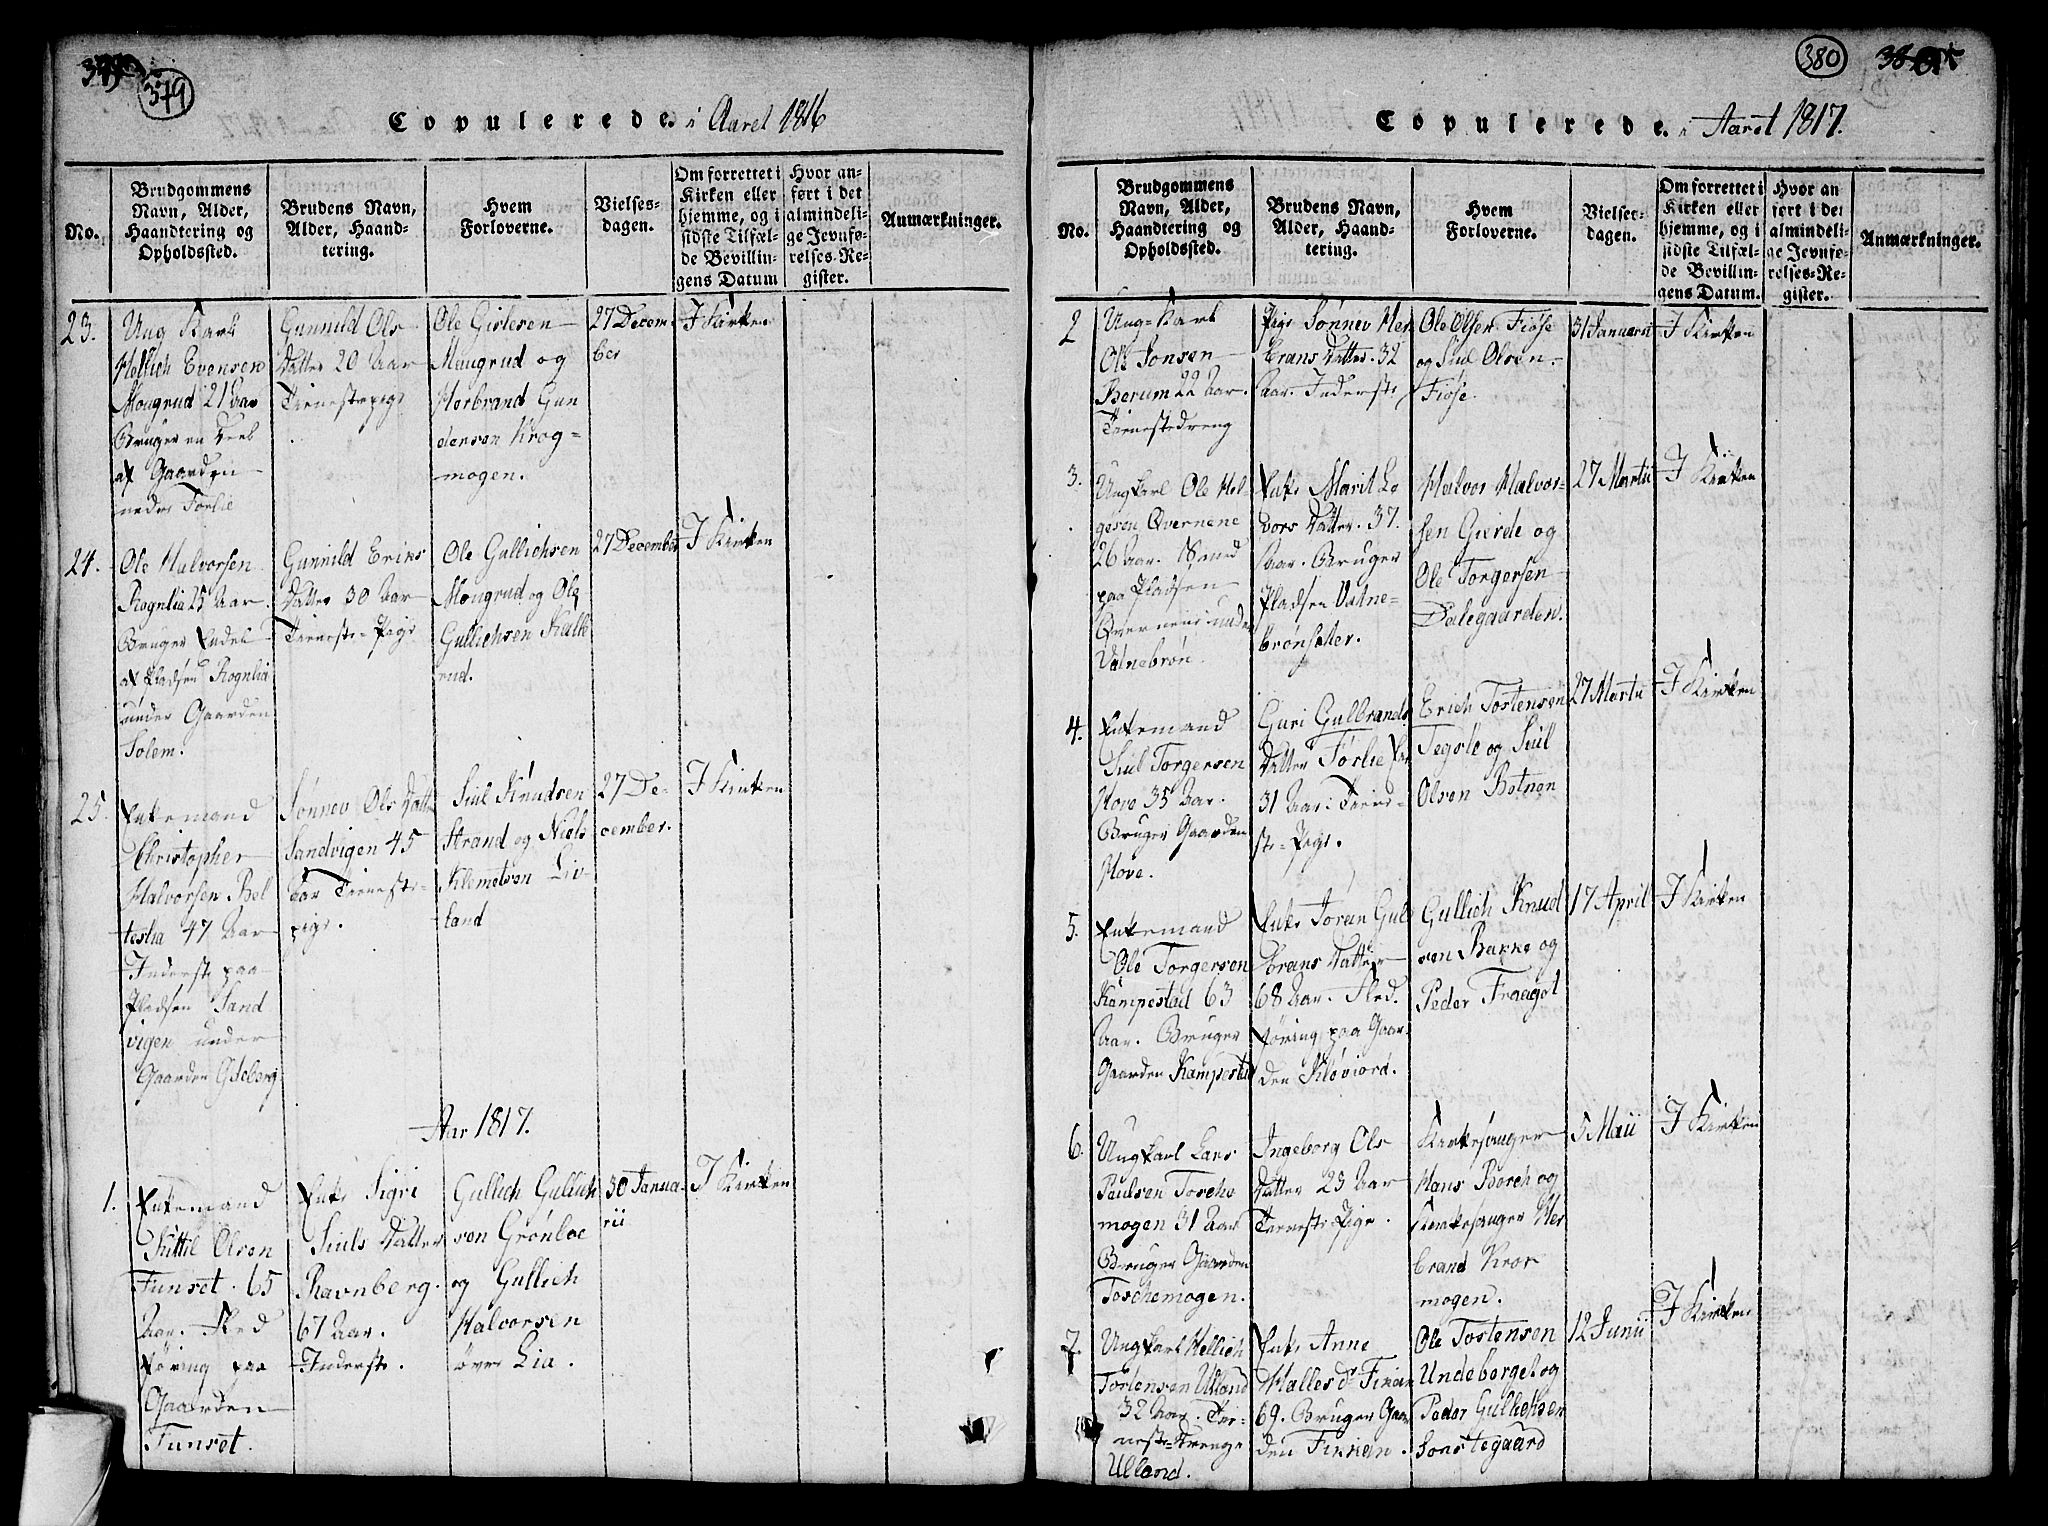 379
Copulerede. i Aaret 1816
No.
Brudgommens
Navn, Alder,
Haandtering og
Opholdssted.
Brudens Navn,
Alder, Haand-
tering.
Hvem
Forloverne.
Vielses-
dagen.
Om forrettet i
Kirken eller
hjemme, og i
sidste Tilfæl-
de Bevillin-
gens Datum
Hvor an-
ført i det
almindeli-
ge Jevnfø-
relses-Re-
gister.
Anmærkninger.
23.
Ung Karl
Hellich Evensen
Mougrud 21 Aar
Bruger en Deel
af Gaarden
nedre Forlie
Gunnild Ols
Datter 20 Aar
Tienestepige
Ole Gislesen
Mougrud og
Herbrand Gun
dersen Krog=
mogen.
27 Decem-
ber
I Kirken
24.
Ole Halvorsen
Rognlia 25 Aar.
Bruger Endel
af Pladsen Rognlia
under Gaarden
Solem.
Gunnild Eriks
Datter 30 Aar
Tieneste-Pige
Ole Gullichsen
Mougrud og Ole
Gullichsen Kalle
rud.
27 December
I Kirken
25.
Enkemand
Christopher
Halvorsen Bel
teslia 47 Aar
Inderste paa
Pladsen Sand
vigen under
Gaarden Gsleberg
Sønnev Ols Datter
Sandvigen 45
Aar Tieneste-
pige.
Siul Knudsen
Strand og Niels
Klemetsen Liv-
land
27 De-
cember.
I Kirken
Aar 1817.
1.
Enkemand
Kittil Olsen
Tunset. 65
Aar. Fled
føring paa
Gaarden
Tunset.
Enke Sigri
Siuls Datter
Ravnberg.
67 Aar.
Inderste.
Gullich Gullich
sen Grønloe
og Gullich
Halvorsen
øvre Lia.
30 Janua-
rii
I Kirken
380
Copulerede. i Aaret 1817.
No.
Brudgommens
Navn, Alder,
Haandtering og
Opholdssted.
Brudens Navn,
Alder, Haand-
tering.
Hvem
Forloverne.
Vielses-
dagen.
Om forrettet i
Kirken eller
hjemme, og i
sidste Tilfæl-
de Bevillin-
gens Datum.
Hvor an
ført i det
almindeli-
ge Jevnfø-
relses-Re-
gister.
Anmærkninger.
2
Ung-Karl
Ole Jonsen
Berum 22 Aar.
Tienestedreng
Pige Sønnev Her
brans Datter. 32
Aar. Inderste
Ole Olsen Fiøse
og Siul Olsen
Fiøse.
31 Januarii
I Kirken
3.
Ungkarl Ole Hel
gesen Qvernene
26 Aar. Smed
paa Pladsen
Qvernene under
Vatnebrøn.
Enke Marit Lo
vors Datter. 37.
Aar. Bruger
Pladsen Vatne-
brønseter.
Halvor Halvor-
sen Gierde og
Ole Torgersen
Dalegaarden.
27 Martii
I Kirken
4.
Enkemand
Siul Torgersen
Hove 35 Aar.
Bruger Gaarden
Hove.
Guri Gulbrands
Datter Førlie
31 Aar. Tiene-
ste-Pige.
Erich Tostensen
Tegsle og Siul
Olsen Botnen
27 Martii
I Kirken
5.
Enkemand
Ole Torgersen
Kampestad 63
Aar. Bruger
Gaarden Kampestad
Enke Jøran Gul
brans Datter
68 Aar. Fled.
føring paa Gaar-
den Kløviord.
Gullich Knud
sen Bakke og
Peder Fraagot
17 April
I Kirken
6.
Ungkarl Lars
Paulsen Tosche
mogen 31 Aar
Bruger Gaarden
Toschemogen.
Ingeborg Ols
Datter 23 Aar
Tieneste Pige.
Kirkesanger
Hans Borch og
Kirkesanger Her
brand Kror
mogen.
5 Maii
I Kirken
7.
Ungkarl Hellich
Tostensen Ulland
32 Aar. Tie-
neste-Drenge
Ulland.
Enke Anne
Halles D. Firian
69. Bruger Gaar
den Firrian.
Ole Tostensen
Undeberget og
Peder Gullichsen
Sonstegaard
12 Junii
I Kirken